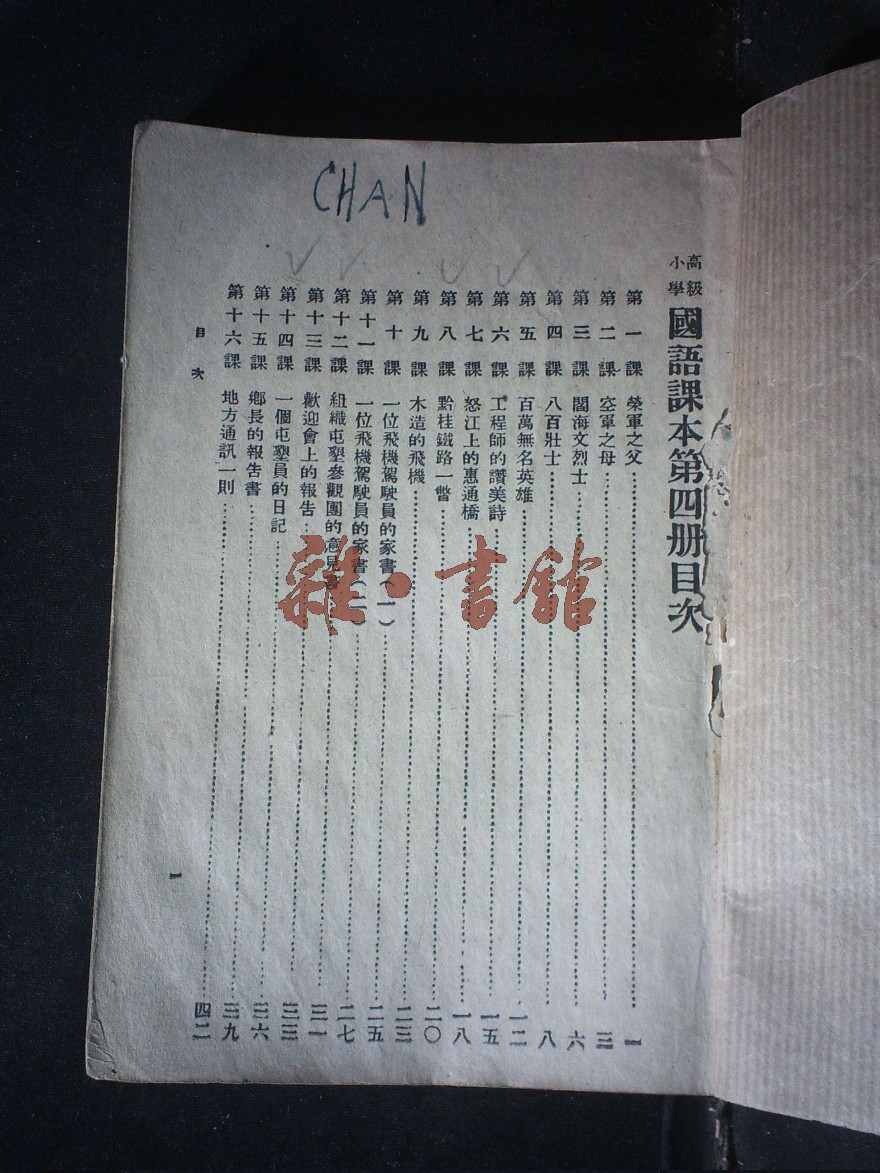 CHAN
高級小學 國語課本第四册目次
第一課 榮軍之父 一
第二課 空軍之母 三
第三課 閻海文烈士 六
第四課 八百壯士 八
第五課 百萬無名英雄 一二
第六課 工程師的讚美詩 一五
第七課 怒江上的惠通橋 一八
第八課 黔桂鐵路一瞥 二〇
第九課 木造的飛機 二三
第十課 一位飛機駕駛員的家書(一) 二五
第十一課 一位飛機駕駛員的家書(二) 二七
第十二課 組織屯墾參觀團的意見書 三一
第十三課 歡迎會上的報告 三三
第十四課 一個屯墾員的日記 三六
第十五課 鄉長的報告書 三九
第十六課 地方通訊一則 四二
目次
一
雜·書館